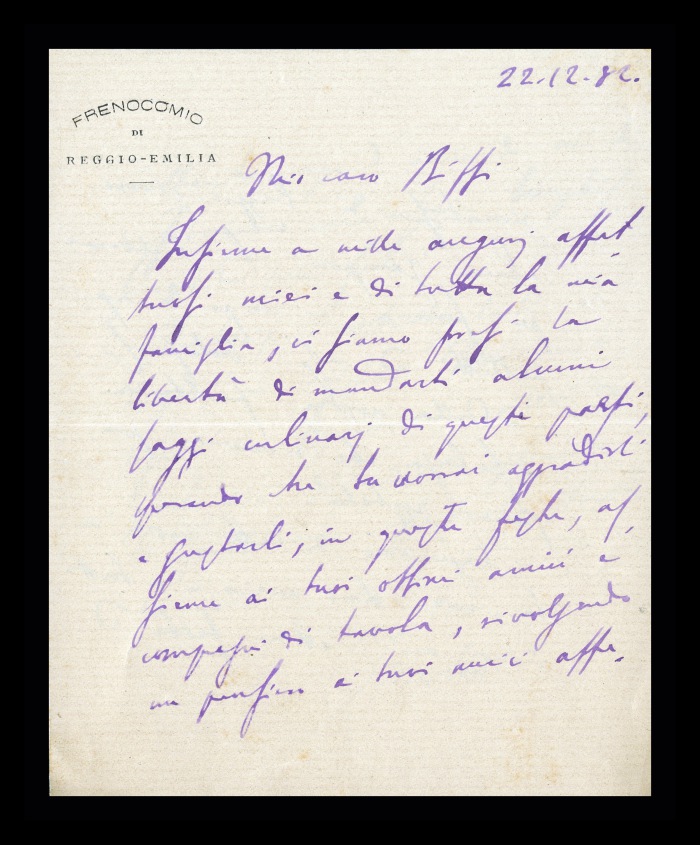 22.12.82.
FRENOCOMIO
DI
REGGIO-EMILIA
Mio caro Biffi
Insieme a mille augurj affet
tuosi miei e di tutta la mia
famiglia, ci siamo presi la
libertà di mandarti alcuni
saggi culinarj di questi paesi,
sperando che tu vorrai aggradirli
e gustarli, in queste feste, as,
sieme ai tuoi ottimi amici e
compagni di tavola, rivolgendo
un pensiero ai tuoi amici affe.